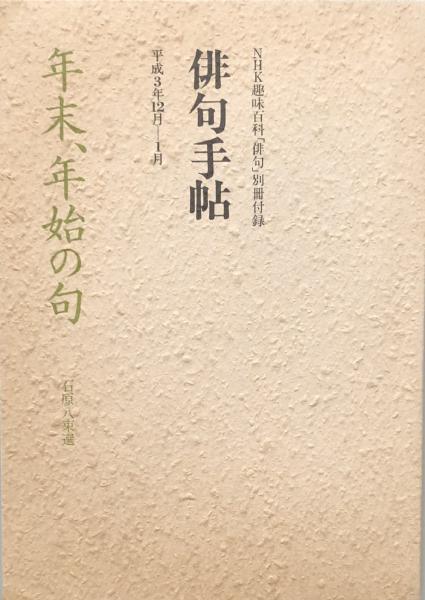 NHK趣味百科「俳句」別冊付録
俳句手帖
平成3年12月―1月
年末、年始の句
石原八束選